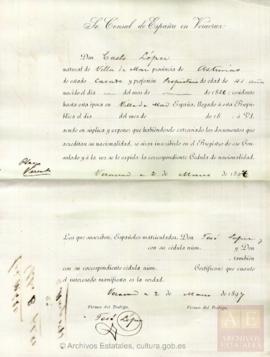 Sr. Consul de España en Veracruz
Don Casto López
natural de Villa de Mar provincia de Asturias
de estado Casado y profesion Propietario de edad de 41 años
nacido el dia del mes de de 1856 residente
hasta esta época en Villa de Mar España, llegado á esta Repú-
blica el dia del mes de de 18 á VI.
sendo en súplica y expone que habiéndosele extraviado los documentos que
acreditan su nacionalidad, se sirva inscribirle en el Registro de ese Con-
sulado y á la vez se le expida la correspondiente Cédula de nacionalidad.
Veracruz a 2 de Marzo de 1897
Los que suscriben, Españoles matriculados, Don José López
con su cédula núm. y Don
también
con su correspondiente cédula núm. Certifican que cuanto
el interesado manifiesta es la verdad.
Veracruz a 2 de Marzo 1897
Firma del Testigo, Firma del Testigo,
José López
© Archivos Estatales, cultura.gob.es
AE
ARCHIVOS
ESTATALES